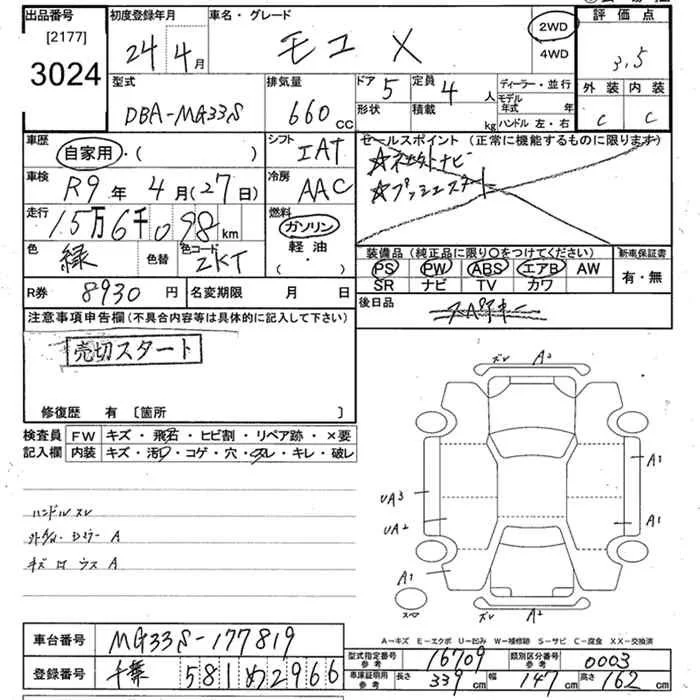 出品番号 初度登録年月 車名・グレード 評価点
[2177] 3024
24年4月 モコ X 2WD 4WD 3.5
外装 内装
C C
型式 排気量 ドア 5 定員 4人 ディーラー・並行
DBA-MG33S 660 cc 形状 積載 kg モデル年式 年
ハンドル 左・右
車歴 自家用・( ) シフト IAT セールスポイント (正常に機能するものに限ります)
☆社外ナビ
☆プッシュスタート
車検 R9年4月(27日) 冷房 AAC
走行 15万6千098km 燃料 ガソリン 軽油 ( ・ )
色 緑 色替 色コード ZKT
装備品 (純正品に限り○をつけてください) 新車保証書
PS PW ABS エアB AW 有・無
SR ナビ TV カワ
R券 8930円 名変期限 月 日 後日品
注意事項申告欄 (不具合内容等は具体的に記入して下さい)
売切スタート
修復歴 有 [箇所 ]
検査員 FW キズ・飛石・ヒビ割・リペア跡・×要
記入欄 内装 キズ・汚レ・コゲ・穴・スレ・キレ・破レ
ハンドルスレ
A
キズ A
ズレ A2
A1
UA3
UA2
A1
A1
スペア
ズレ A2
A-キズ E-エクボ U-凹み W-補修跡 S-サビ C-腐食 XX-交換済
車台番号 MG33S-177819
型式指定番号 参考 16709 類別区分番号 参考 0003
登録番号 千葉 581 め 2966
車庫証明用 参考 長さ 339cm 幅 147cm 高さ 162cm